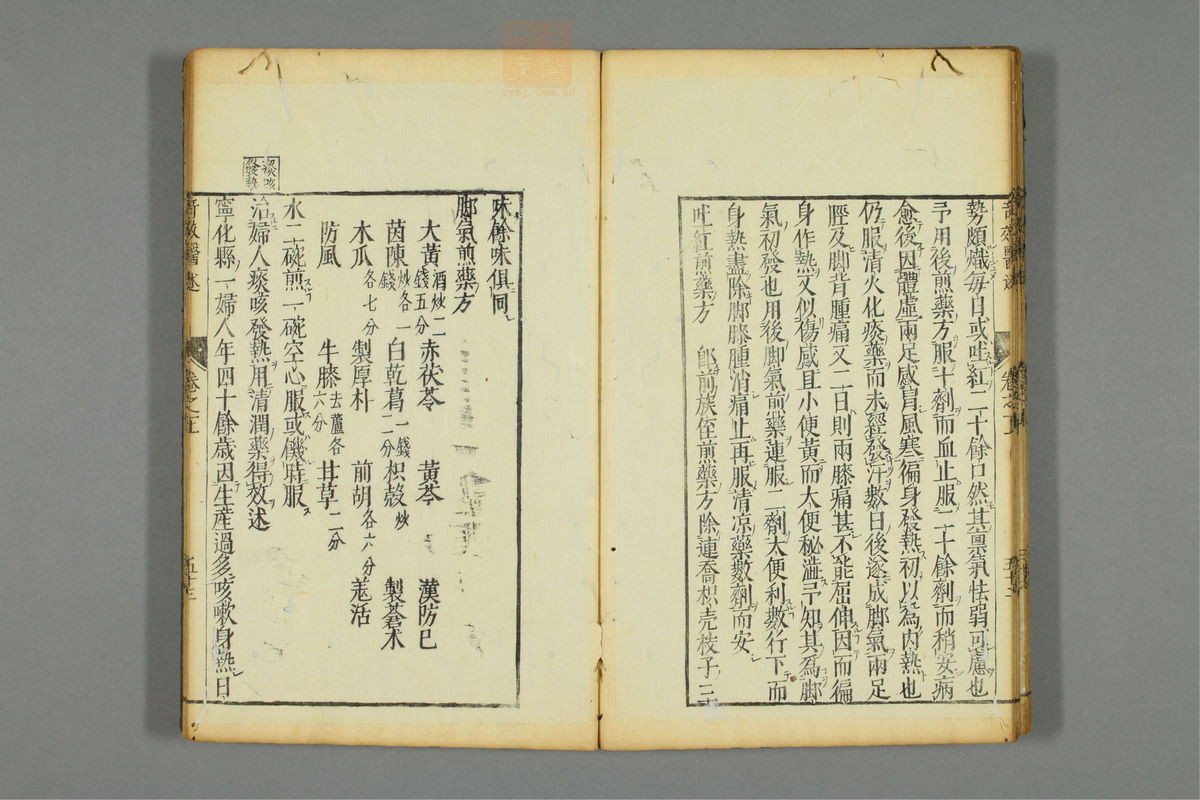 勢頗熾每日或吐紅二十餘口然其稟氣怯弱可慮也
予用後煎藥方服十劑而血止服二十餘劑而稍安病
愈後因體虛兩足感冒風寒徧身發熱初以為內熱也
仍服清火化痰藥而未經發汗數日後遂成脚氣兩足
脛及脚背腫痛又二日則兩膝痛甚不能屈伸因而徧
身作熱又似傷感且小便黃而大便秘澁予知其為脚
氣初發也用後脚氣煎藥連服二劑大便利數行下而
身熱盡除脚膝腫消痛止再服清凉藥數劑而安
吐紅煎藥方 即前族侄煎藥方除連喬枳壳枝子三
味餘味俱同
脚氣煎藥方
大黃酒炒二錢五分 赤茯苓 黃芩 漢防已
茵陳炒各一錢 白乾葛一錢二分 枳殼炒 製蒼术
木瓜各七分 製厚朴 前胡各六分 羗活
防風 牛膝去蘆各六分 甘草二分
水二碗煎一碗空心服或饑時服
痰咳發熱
治婦人痰咳發熱用清潤藥得效述
寧化縣一婦人年四十餘歲因生產過多咳嗽身熱日
奇效醫述
卷之
zysj.com.cn